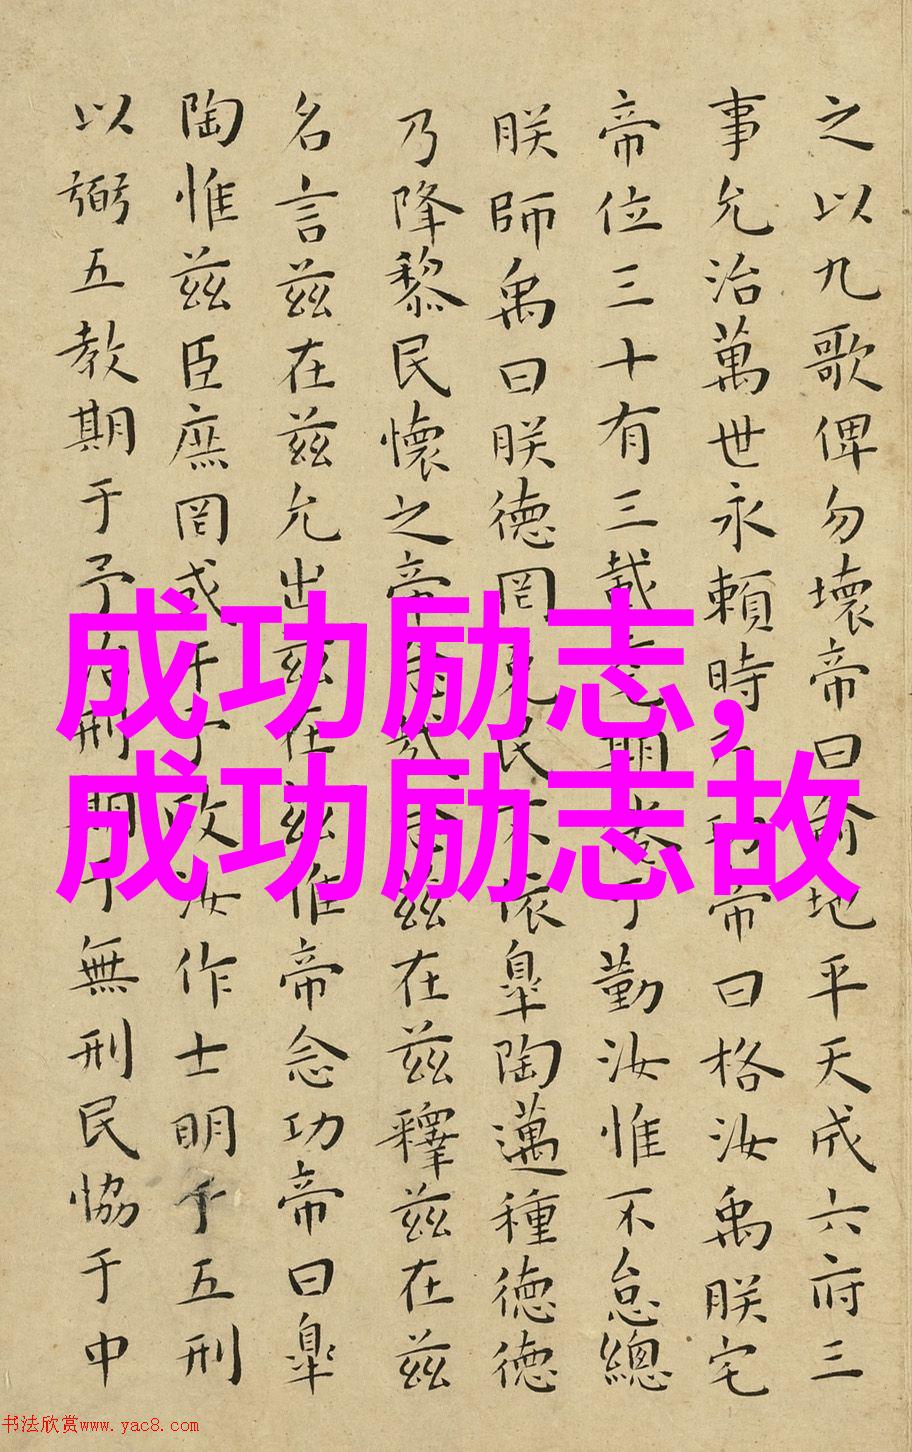 之以九歌俾勿壞帝曰俞地平天成六府三
事允治萬世永賴時乃功帝曰格汝禹朕宅
帝位三十有三載耄期倦于勤汝惟不怠總
朕師禹曰朕德罔克民不依皐陶邁種德德
乃降黎民懷之帝念哉念兹在兹釋兹在兹
名言兹在兹允出兹在兹惟帝念功帝曰皐
陶惟兹臣庶罔或干予政汝作士明于五刑
以弼五教期于予治刑期于無刑民協于中
成功励志,
成功励志故
书法欣赏www.yac8.com